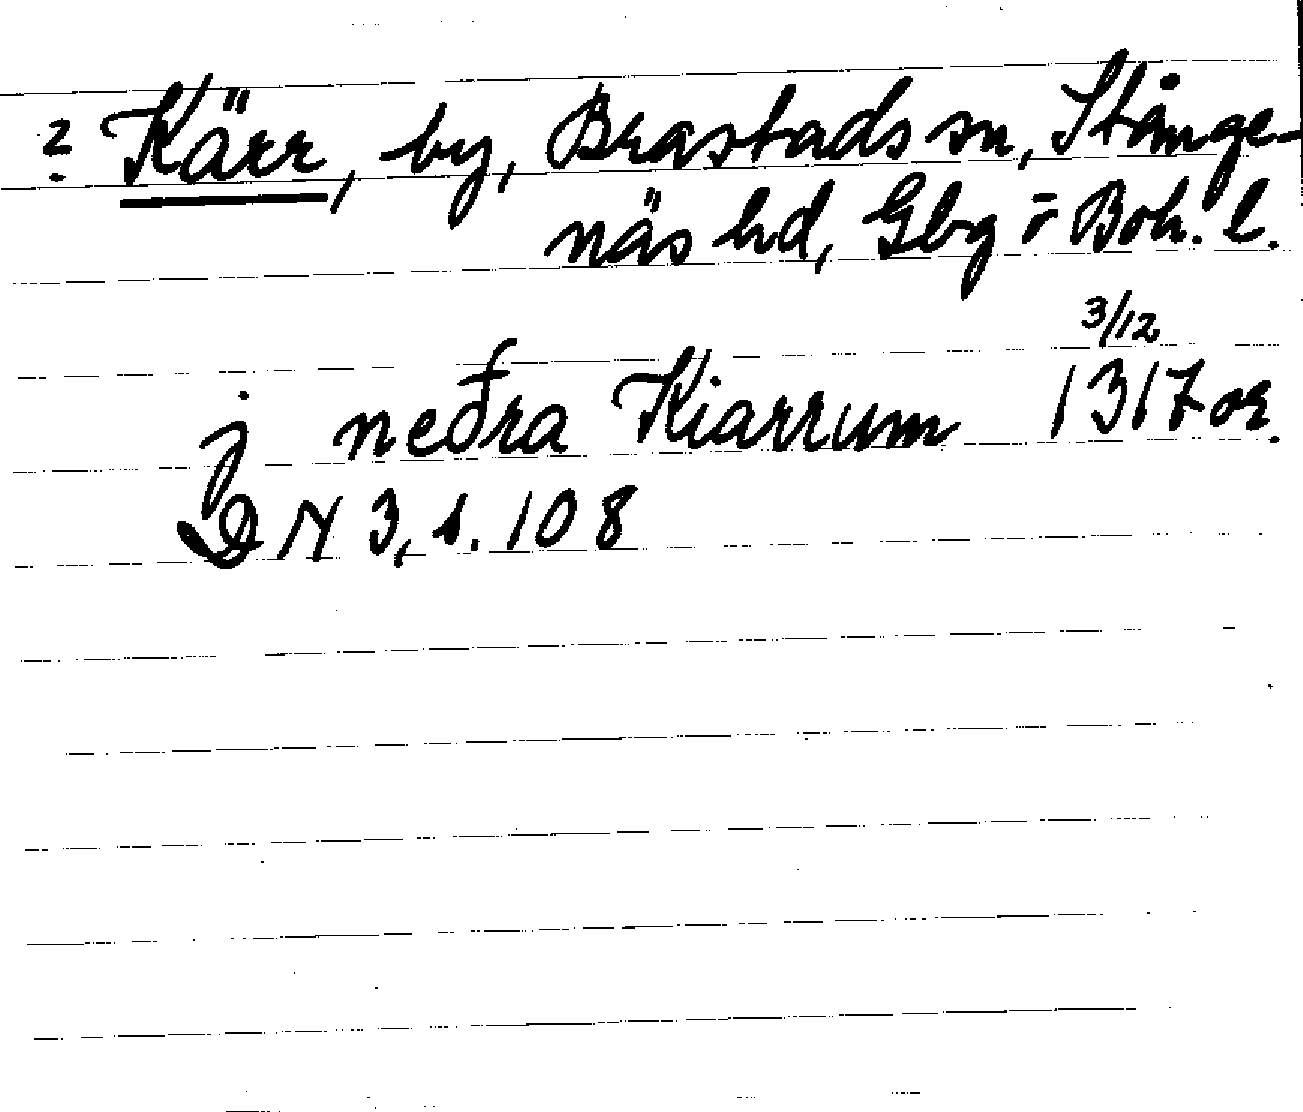 ? Kärr, by, Brastads sn, Stånge-
näs hd, Gbg o Boh. l.
3/12
j neðra Kiarrum 1317 or.
DN 3, s. 108